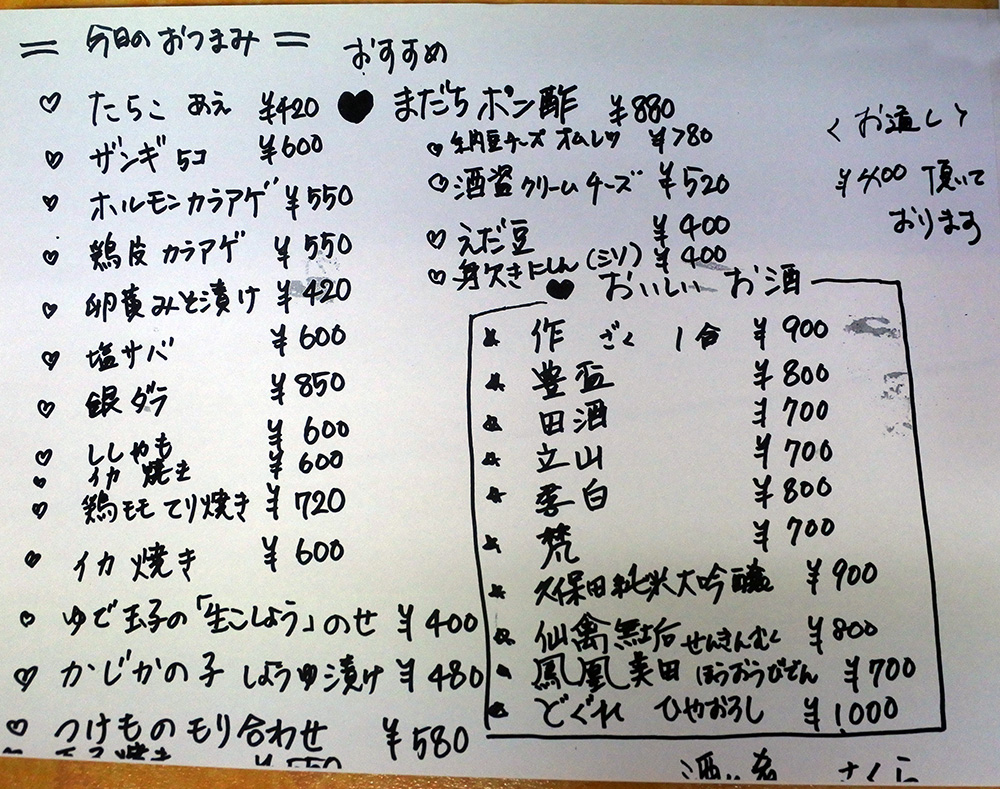 = 今日のおつまみ =
おすすめ
♡ たらこ あえ ¥420
♡ ザンギ 5コ ¥600
♡ ホルモンカラアゲ ¥550
♡ 鶏皮 カラアゲ ¥550
♡ 卵黄みそ漬け ¥420
♡ 塩サバ ¥600
♡ 銀ダラ ¥850
♡ ししゃも ¥600
イカ 焼き ¥600
♡ 鶏モモ てり焼き ¥720
♡ イカ 焼き ¥600
♡ ゆで玉子の「生こしょう」のせ ¥400
♡ かじかの子 しょうゆ漬け ¥480
♡ つけもの もり合わせ ¥580
焼き ¥550
♥ まだち ポン酢 ¥880
♡ 納豆チーズ オムレツ ¥780
♡ 酒盗クリームチーズ ¥520
♡ えだ豆 ¥400
♡ 身欠きにしん (ミソ) ¥400
<お通し>
¥400 頂いて
おります
♥ おいしい お酒
★ 作 ざく 1合 ¥900
★ 豊盃 ¥800
★ 田酒 ¥700
★ 立山 ¥700
★ 李白 ¥800
★ 梵 ¥700
★ 久保田 純米大吟醸 ¥900
★ 仙禽無垢 せんきんむく ¥800
★ 鳳凰美田 ほうおうびでん ¥700
★ どぐれ ひやおろし ¥1000
さくら